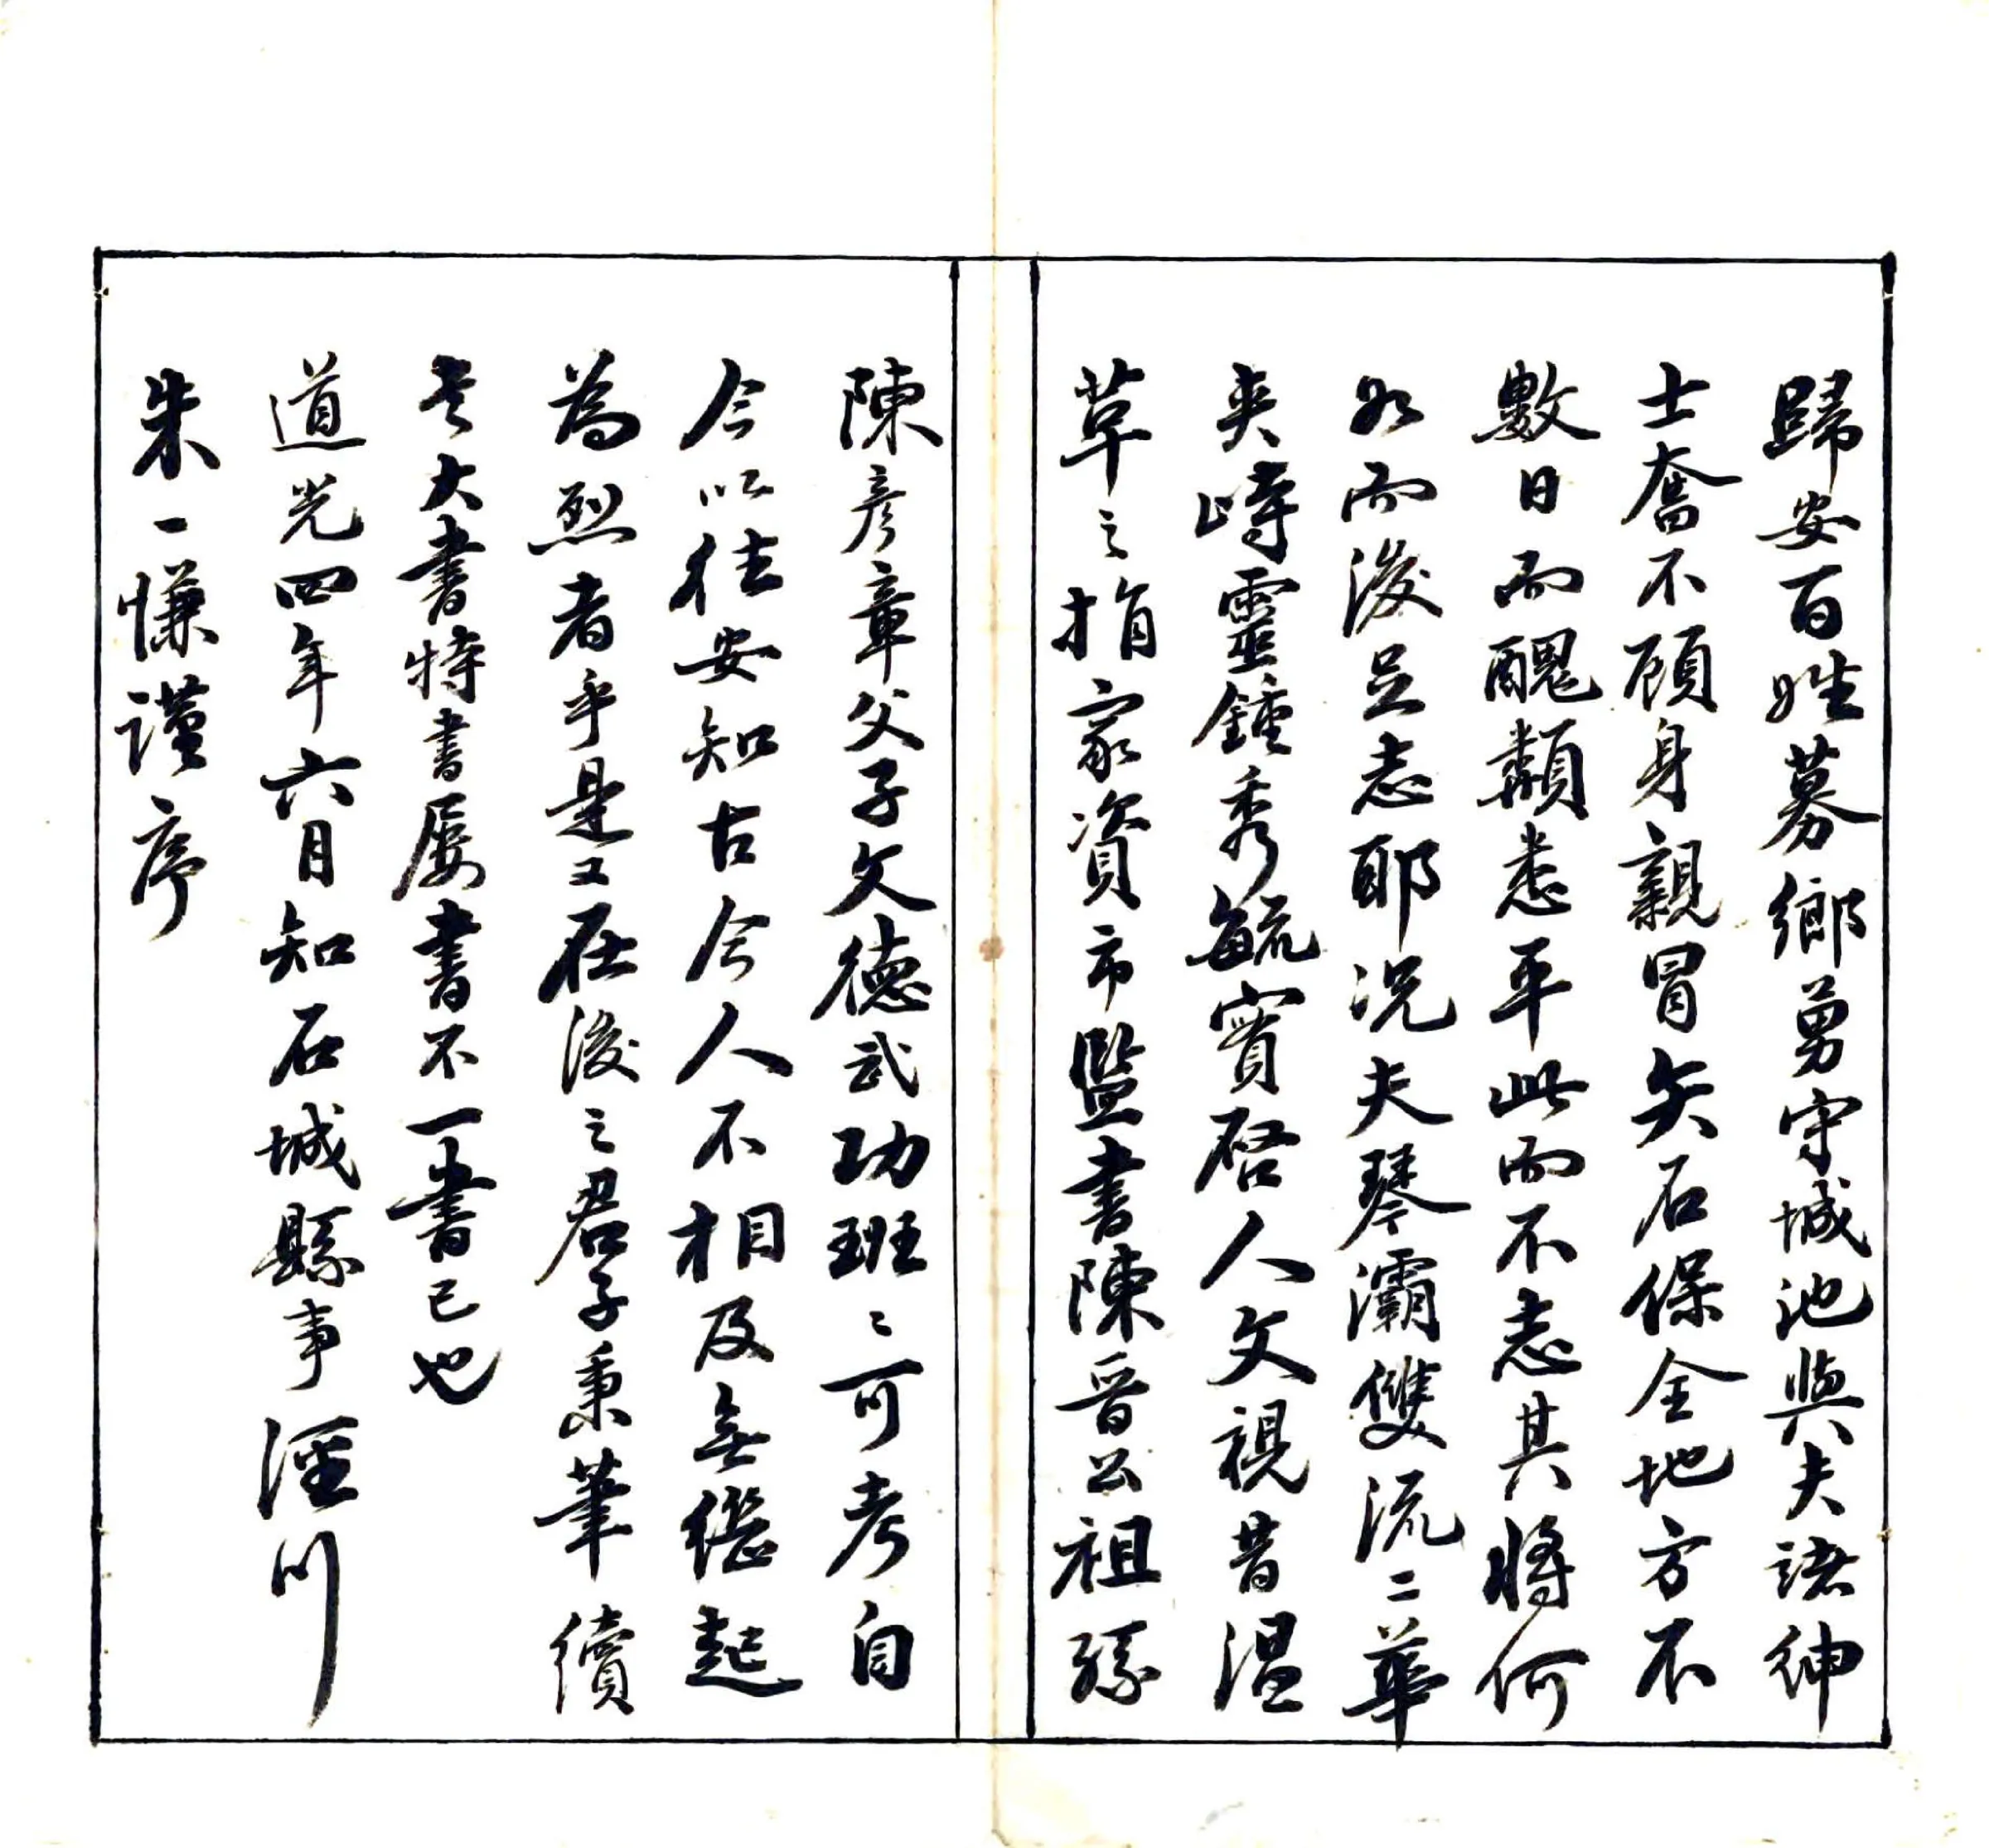 歸安百姓募鄉勇守城池與夫諸紳
士奮不顧身親冒矢石保全地方不
數日而醜類悉平此而不志其將何
如而後足志耶況夫琴灞雙流二華
夾峙靈鍾秀毓實啓人文視昔溫
草之捐家資市監書陳晉公祖孫
陳彥章父子文德武功班〻可考自
今以往安知古今人不相及無繼起
為烈者乎是又在後之君子秉筆續
大書特書屢書不一書已也
道光四年六月知石城縣事涇川
朱一慊謹序